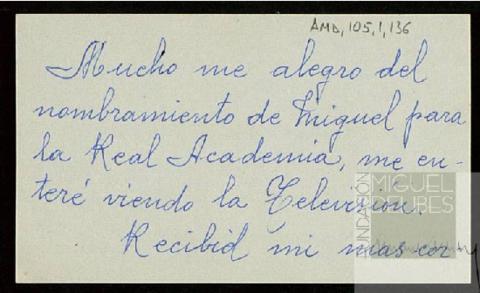 AMD, 105, 1, 136
Mucho me alegro del
nombramiento de Miguel para
la Real Academia, me en-
teré viendo la Television.
Recibid mi mas cor
FUNDACIÓN
MIGUEL
DELIBES